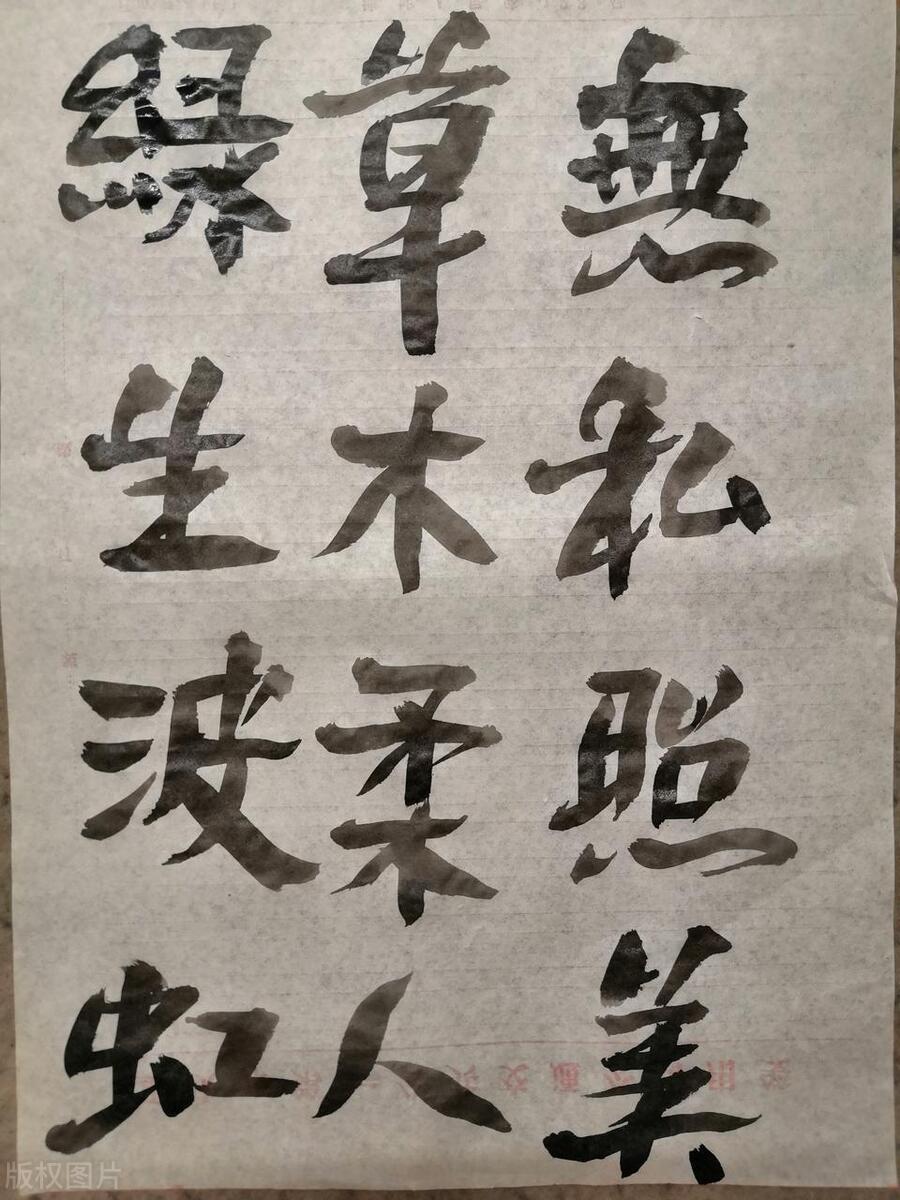 無私照美
草木柔人
綠生波虹
版权图片